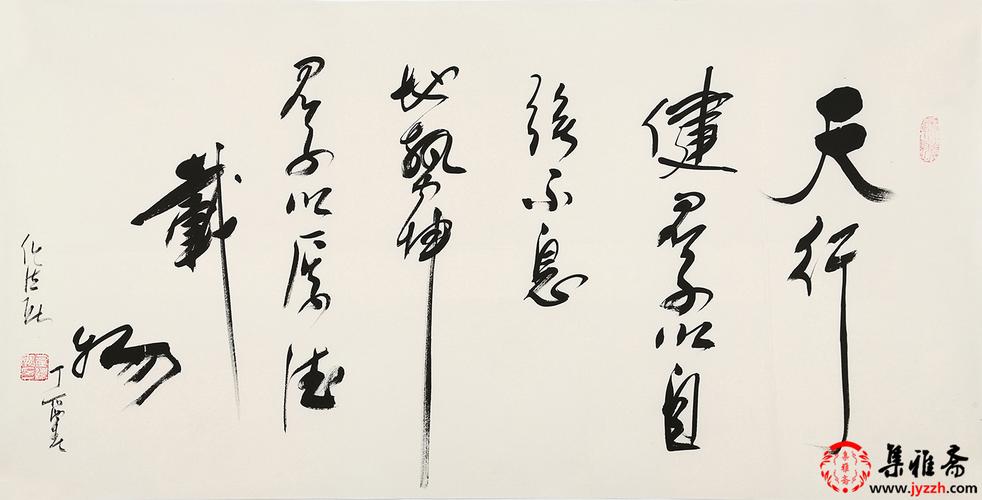 天行
健君子以自
强不息
地勢坤
君子以厚德
載
物
任法融
集雅斋
www.jyzzh.com